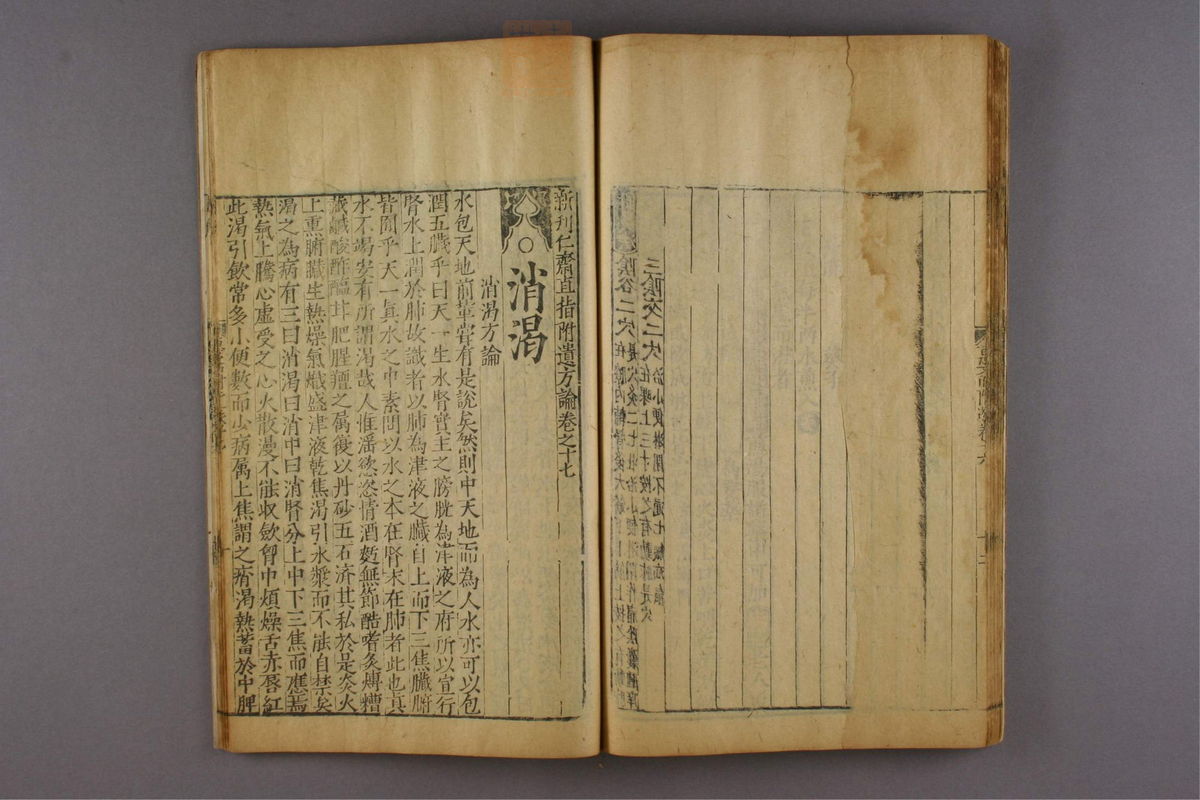 三陰交二穴
治小便淋閉不通
在踝上三寸按之有動脉是穴
陰谷二穴
是穴灸二七壯治小便淋閉作痛陰
在膝內輔骨後大筋下小筋上按之有動脉
新刊仁齋直指附遺方論卷之十七
消渴
消渴方論
水包天地前輩嘗有是說矣然則中天地而為人水亦可以包
潤五臟乎曰天一生水腎實主之膀胱為津液之府所以宣行
腎水上潤於肺故識者以肺為津液之臟自上而下三焦臟腑
皆囿乎天一真水之中素問以水之本在腎末在肺者此也真
水不竭安有所謂渴哉人惟滛慾恣情酒麪無節酷嗜炙煿糟
藏鹹酸酢醢甘肥腥羶之属復以丹砂五石濟其私於是炎火
上熏腑臟生熱燥氣熾盛津液乾焦渴引水漿而不能自禁矣
渴之為病有三曰消渴曰消中曰消腎分上中下三焦而應焉
熱氣上騰心虛受之心火散漫不能收斂胷中煩燥舌赤唇紅
此渴引飲常多小便數而少病属上焦謂之痟渴熱蓄於中脾